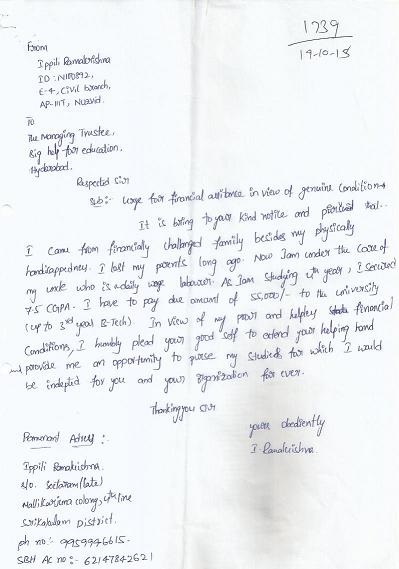 1739
19-10-15
From
Ippili Ramakrishna
ID : N110892,
E-4, Civil branch,
AP-IIIT, Nuzvid.
To
The Managing Trustee,
Big help for education,
Hyderabad.
Respected Sir
Sub:- Urge for financial assistance in view of genuine condition
It is bring to your kind notice and that..
I came from financially challanged family besides my physically
handicappedness. I lost my parents long ago. Now I am under the care of
my uncle who is a daily wage labour. As I am studying 4th year, I secured
7.5 CGPA. I have to pay due amount of 55,000/- to the university
(up to 3rd year B-Tech). In View of my poor and helpley financial
Conditions, I humbly plead your good self to extend your helping hand
and provide me an opportunity to purse my studies for which I would
be indepted for you and your organization for ever.
Thanking you sir
yours obediently
I. Ramakrishna.
Permanent Adress :-
Ippili Ramakrishna.
S/o. Seetaram (late)
Mallikarjuna colony, 4th line
Srikakulam District.
ph no:- 9959946615.
SBH Ac no:- 62147842621